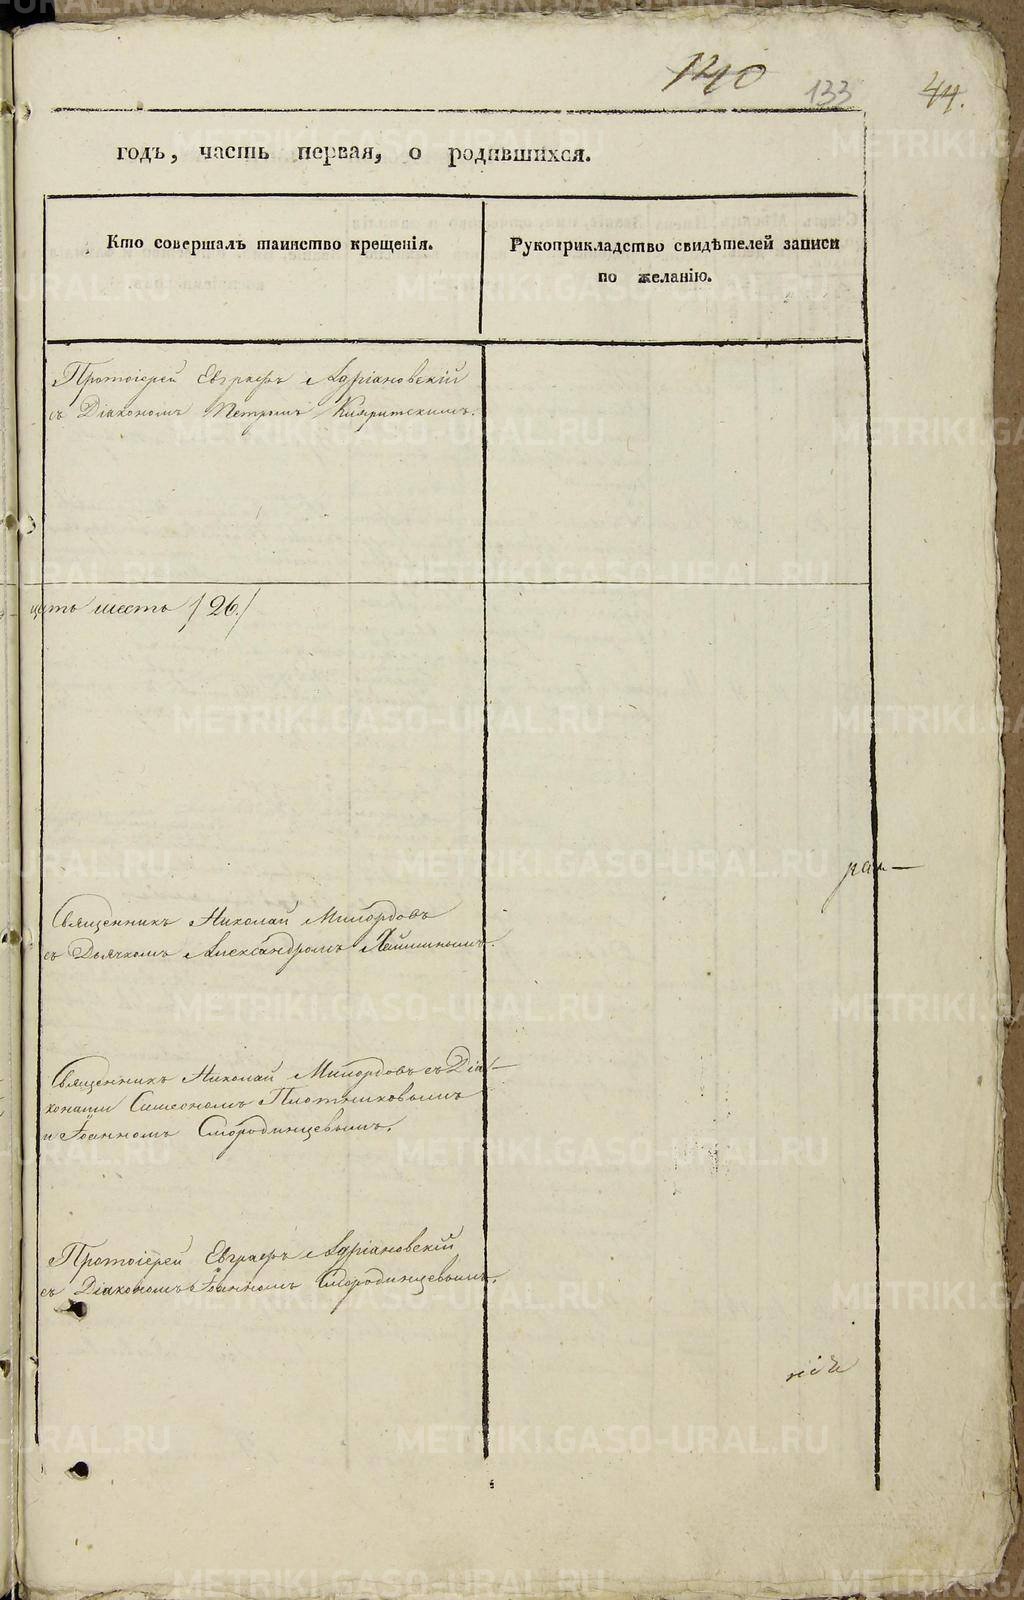 140 133 44.
годъ, часть первая, о родившихся.
Кто совершалъ таинство крещенія.
Рукоприкладство свидѣтелей записи
по желанію.
Протоіерей Евграфъ Адріановскій
съ Діакономъ Петромъ
цать шесть /26./
Священникъ Николай Милордовъ
съ Дьячкомъ Александромъ
Священникъ Николай Милордовъ съ Діа-
конами Симеономъ Плотниковымъ
и Іоанномъ Смородинцевымъ.
Протоіерей Евграфъ Адріановскій
съ Діакономъ Іоанномъ Смородинцевымъ.
METRIKI.GASO-URAL.RU